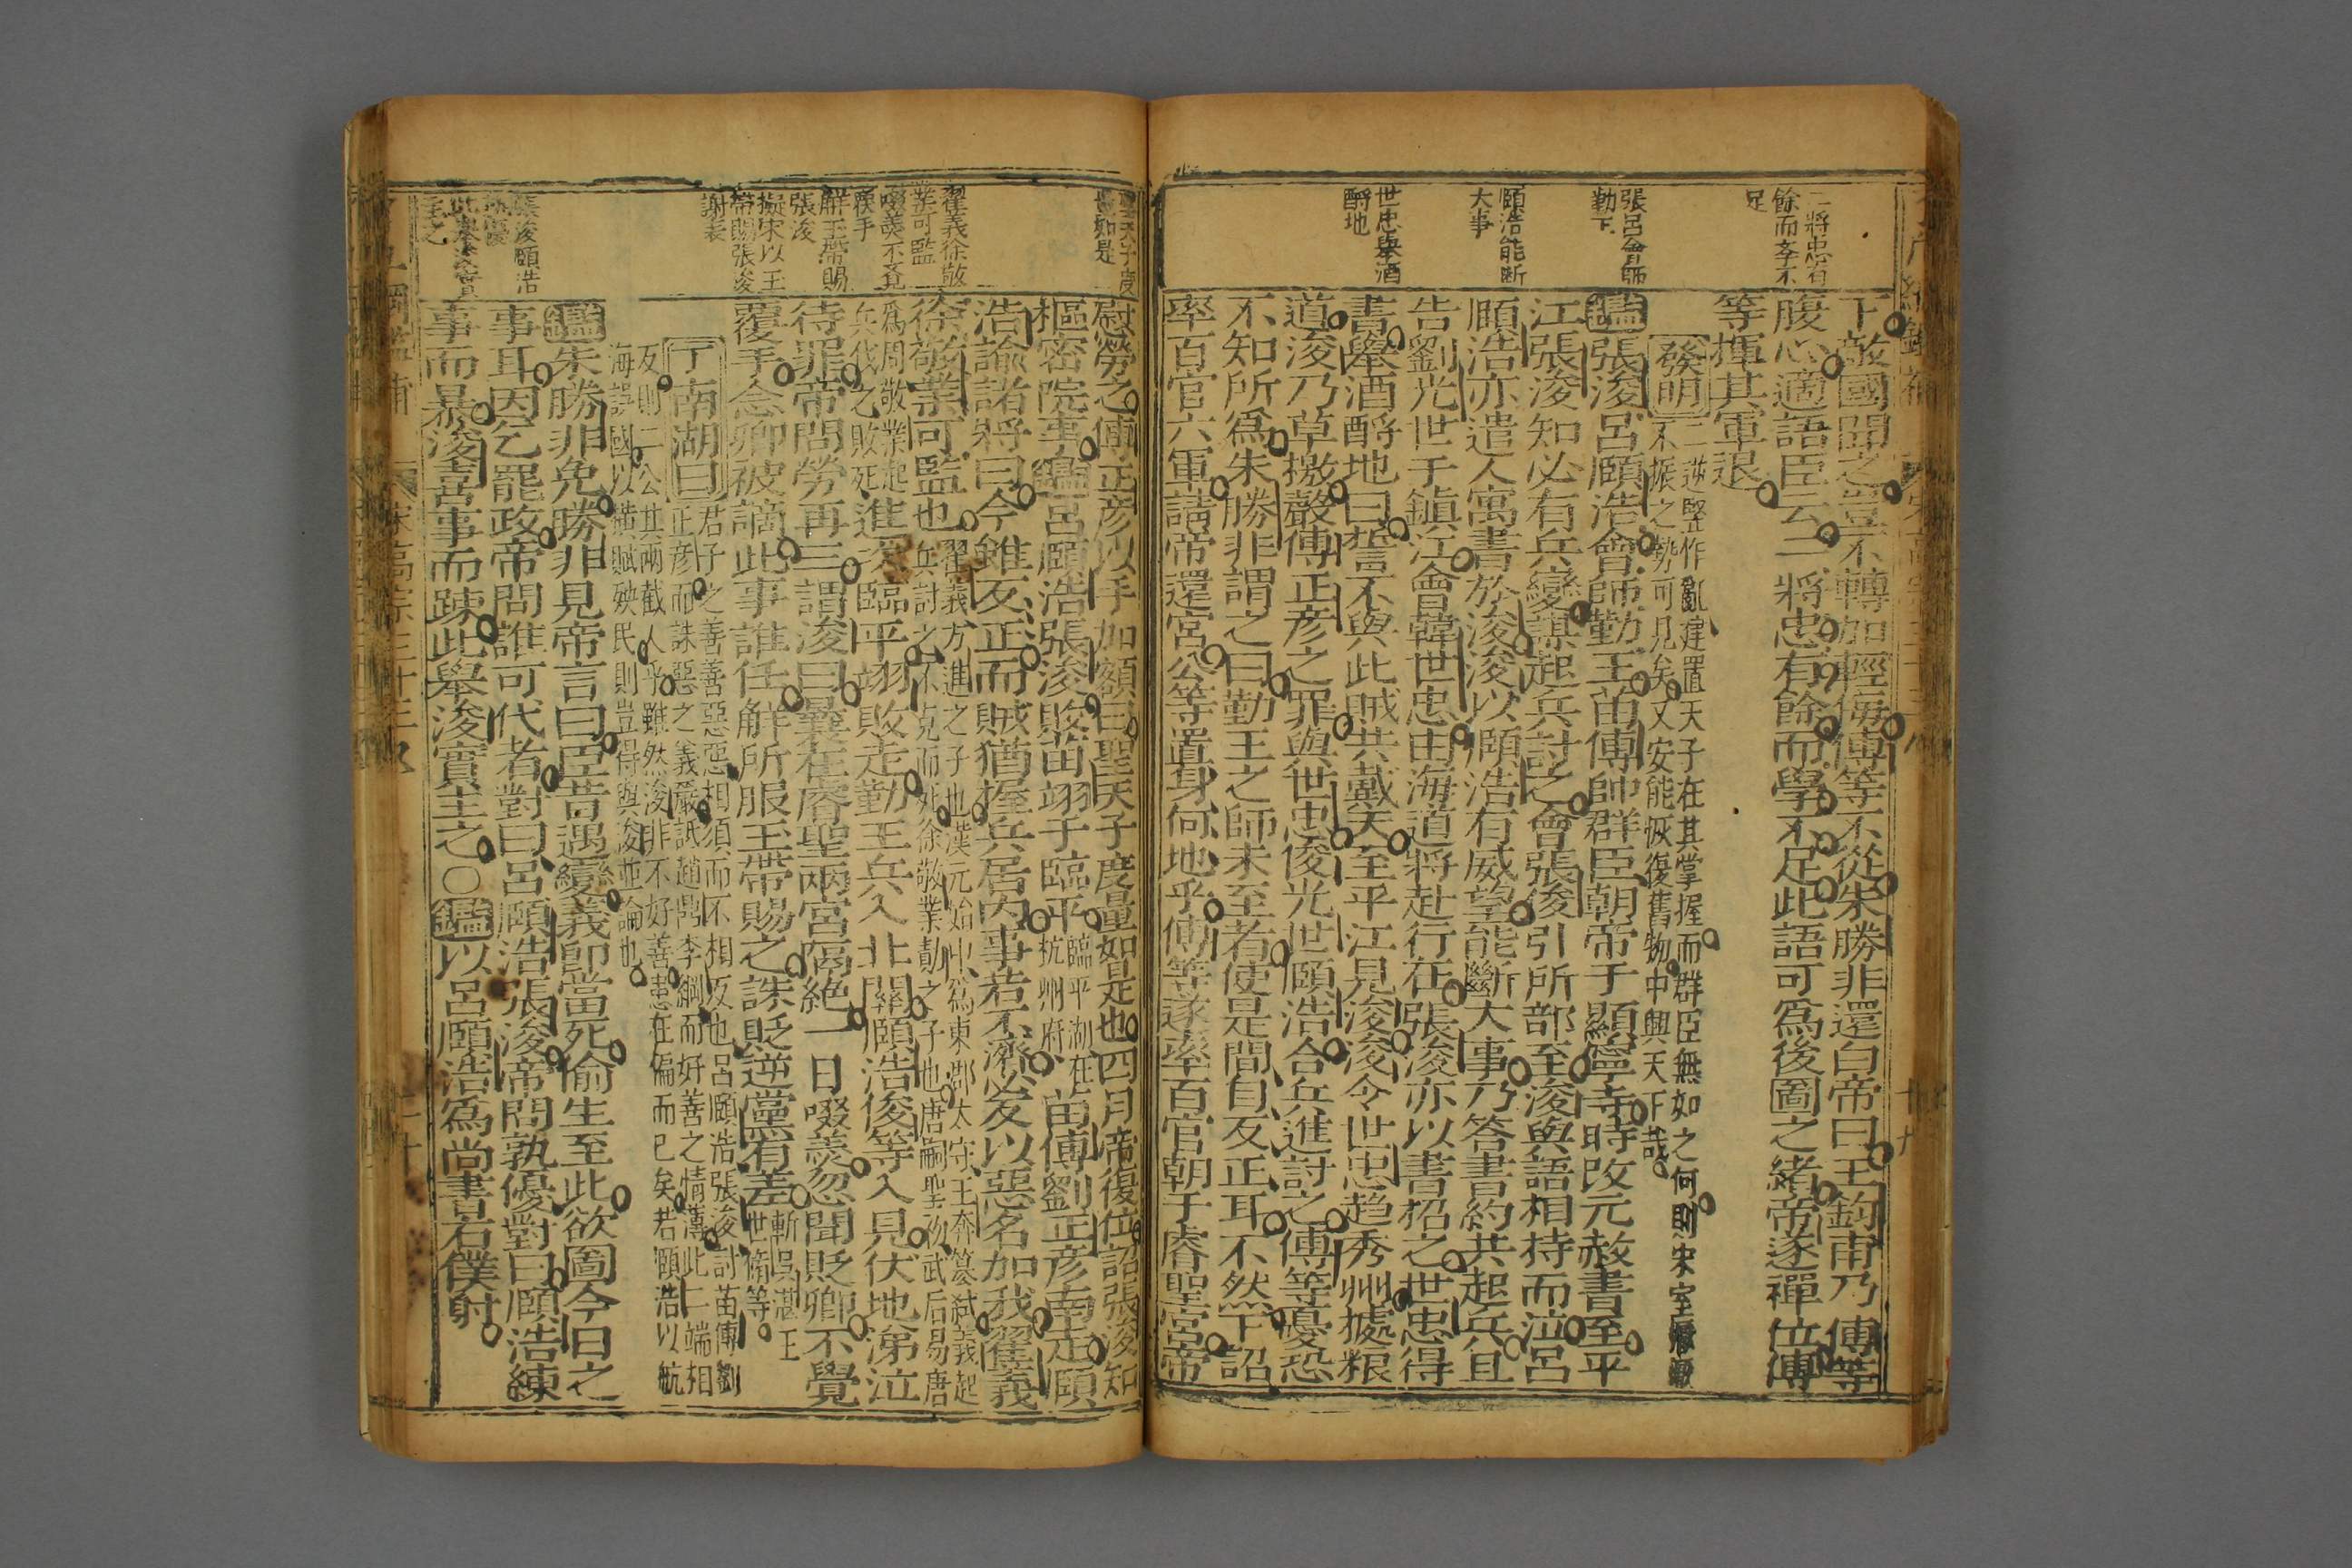 二將忠有
餘而李不
足
張呂會師
勤下
頤浩能斷
大事
世忠舉酒
酹地
下敵國聞之豈不轉加輕侮傅等不從朱勝非還白帝曰王鈞甫乃傅等
腹心適語臣云二將忠有餘而學不足此語可爲後圖之緒帝遂禪位傅
等揮其軍退
發明
二逆堅作亂建置天子在其掌握而群臣無如之何則宋室
不振之勢可見矣又安能恢復舊物中興天下哉
鑑張浚呂頤浩會師勤王苗傅帥群臣朝帝于顯寧寺時改元赦書至平
江張浚知必有兵變謀起兵討之會張俊引所部至浚與語相持而泣呂
頤浩亦遣人寓書於浚浚以頤浩有威望能斷大事乃答書約共起兵且
告劉光世于鎮江會韓世忠由海道將赴行在張浚亦以書招之世忠得
書舉酒酹地曰誓不與此賊共戴天至平江見浚浚令世忠趋秀州據粮
道浚乃草檄聲傅正彥之罪與世忠俊光世頤浩合兵進討之傅等憂恐
不知所爲朱勝非謂之曰勤王之師未至者使是間自反正耳不然下詔
率百官六軍請帝還宮公等置身何地乎傅等遂率百官朝于睿聖宮帝
聖天子度
量如是
翟義徐敬
業可監
啜羮不覺
覆手
解玉帶賜
張浚
擬宋以玉
帶賜張浚
謝表
張浚頤浩
孰優
此舉浚實
主之
慰勞之傅正彥以手加額曰聖天子度量如是也四月帝復位詔張浚知
樞密院事鑑呂頤浩張浚敗苗翊于臨平
臨平湖在
杭州府
苗傅劉正彥南走頤
浩諭諸將曰今雖反正而賊猶握兵居內事若不濟必反以惡名加我翟義
徐敬業可監也
翟義方進之子也漢元始中爲東郡太守王莽篡弑義起
兵討之不克而死徐敬業勣之子也唐嗣聖初武后易唐
爲周敬業起
兵伐之敗死
進次臨平翊敗走勤王兵入北關頤浩俊等入見伏地涕泣
待罪帝問勞再三謂浚曰曩在睿聖兩宮隔絶一日啜羮忽聞貶卿不覺
覆手念卿被謫此事誰任解所服玉帶賜之誅貶逆黨有差
斬吳湛王
世脩等
丁南湖曰
君子之善善惡惡相須而不相反也呂頤浩張浚討苗傅劉
正彥而誅惡之義嚴詆趙鼎李綱而好善之情薄此二端相
反則二公其兩截人乎雖然浚非不好善患在偏而已矣若頤浩以航
海誤國以橫賦殃民則豈得與浚並論也
鑑朱勝非免勝非見帝言曰臣昔遇變義即當死偷生至此欲圖今日之
事耳因乞罷政帝問誰可代者對曰呂頤浩張浚帝問孰優對曰頤浩練
事而暴浚喜事而踈此舉浚實主之○鑑以呂頤浩爲尚書右僕射